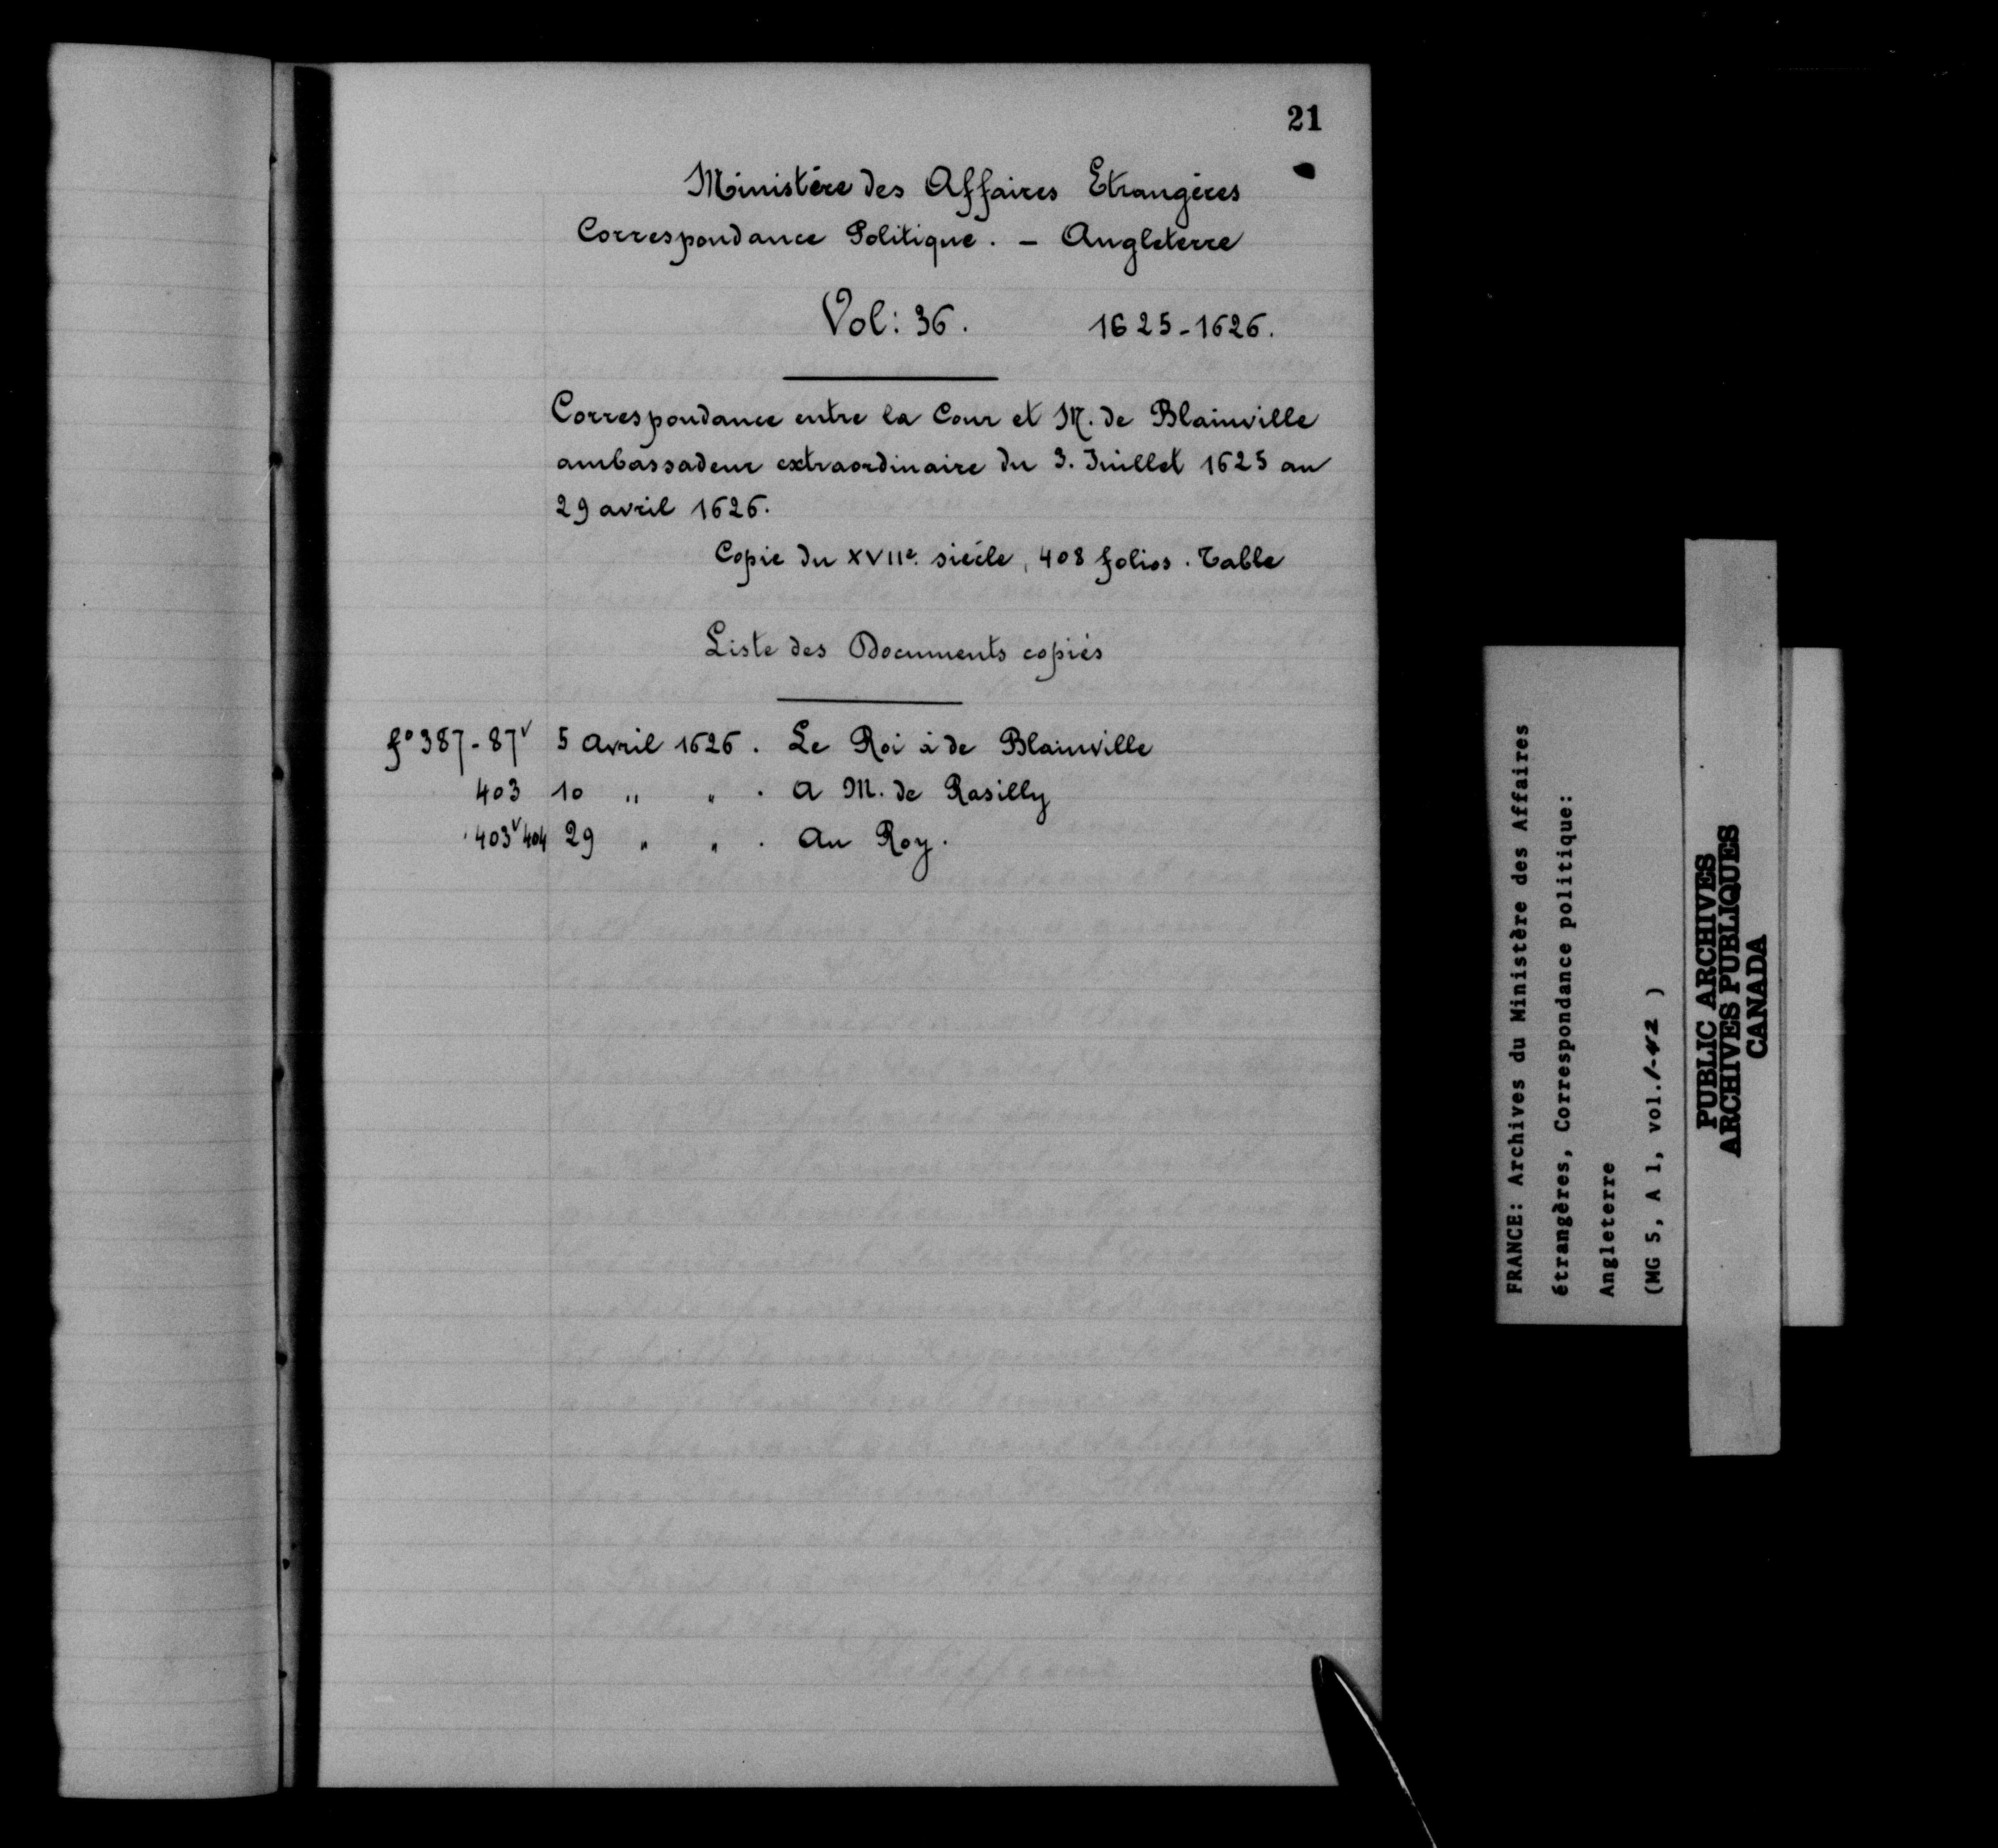 21
Ministère des Affaires Etrangères
Correspondance Politique. - Angleterre
Vol: 36. 1625-1626.
Correspondance entre la Cour et M. de Blainville
ambassadeur extraordinaire du 3. Juillet 1625 au
29 avril 1626.
Copie du XVIIe siècle, 408 folios. Table
Liste des Documents copiés
fº 387-87v 5 Avril 1626. Le Roi à de Blainville
403 10 " " . A M. de Rasilly
403v 404 29 " " . Au Roy.
FRANCE: Archives du Ministère des Affaires
étrangères, Correspondance politique:
Angleterre
(MG 5, A 1, vol. 1-42 )
PUBLIC ARCHIVES
ARCHIVES PUBLIQUES
CANADA